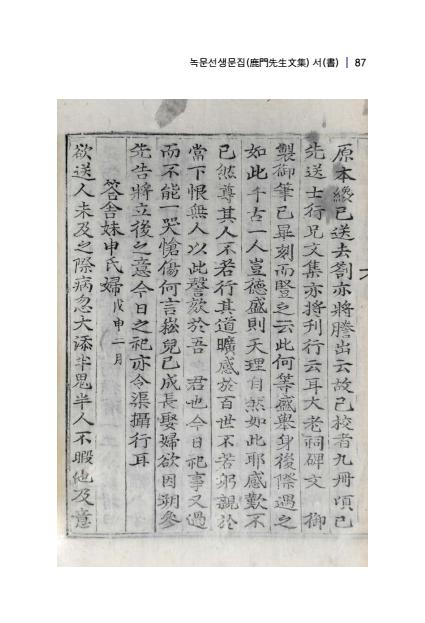 녹문선생문집(鹿門先生文集) 서(書) | 87
原本纔已送去劄亦將謄出云故已校者九冊頃已
先送士行兄文集亦將刊行云耳大老祠碑文 御
製御筆已畢刻而豎之云此何等盛擧身後際遇之
如此千古一人豈德盛則天理自然如此耶感歎不
已然尊其人不若行其道曠感於百世不若躬覯於
當下恨無人以此謦欬於吾 君也今日祀事又過
而不能一哭愴傷何言崧兒已成長娶婦欲因朔參
先告將立後之意今日之祀亦令渠攝行耳
答舍妹申氏婦戊申二月
欲送人未及之際病忽大添半鬼半人不暇他及意